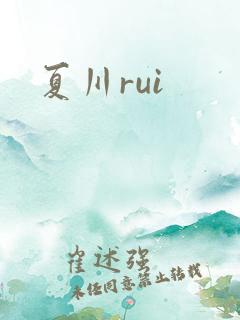 夏川rui
崔述强
未经同意禁止转载